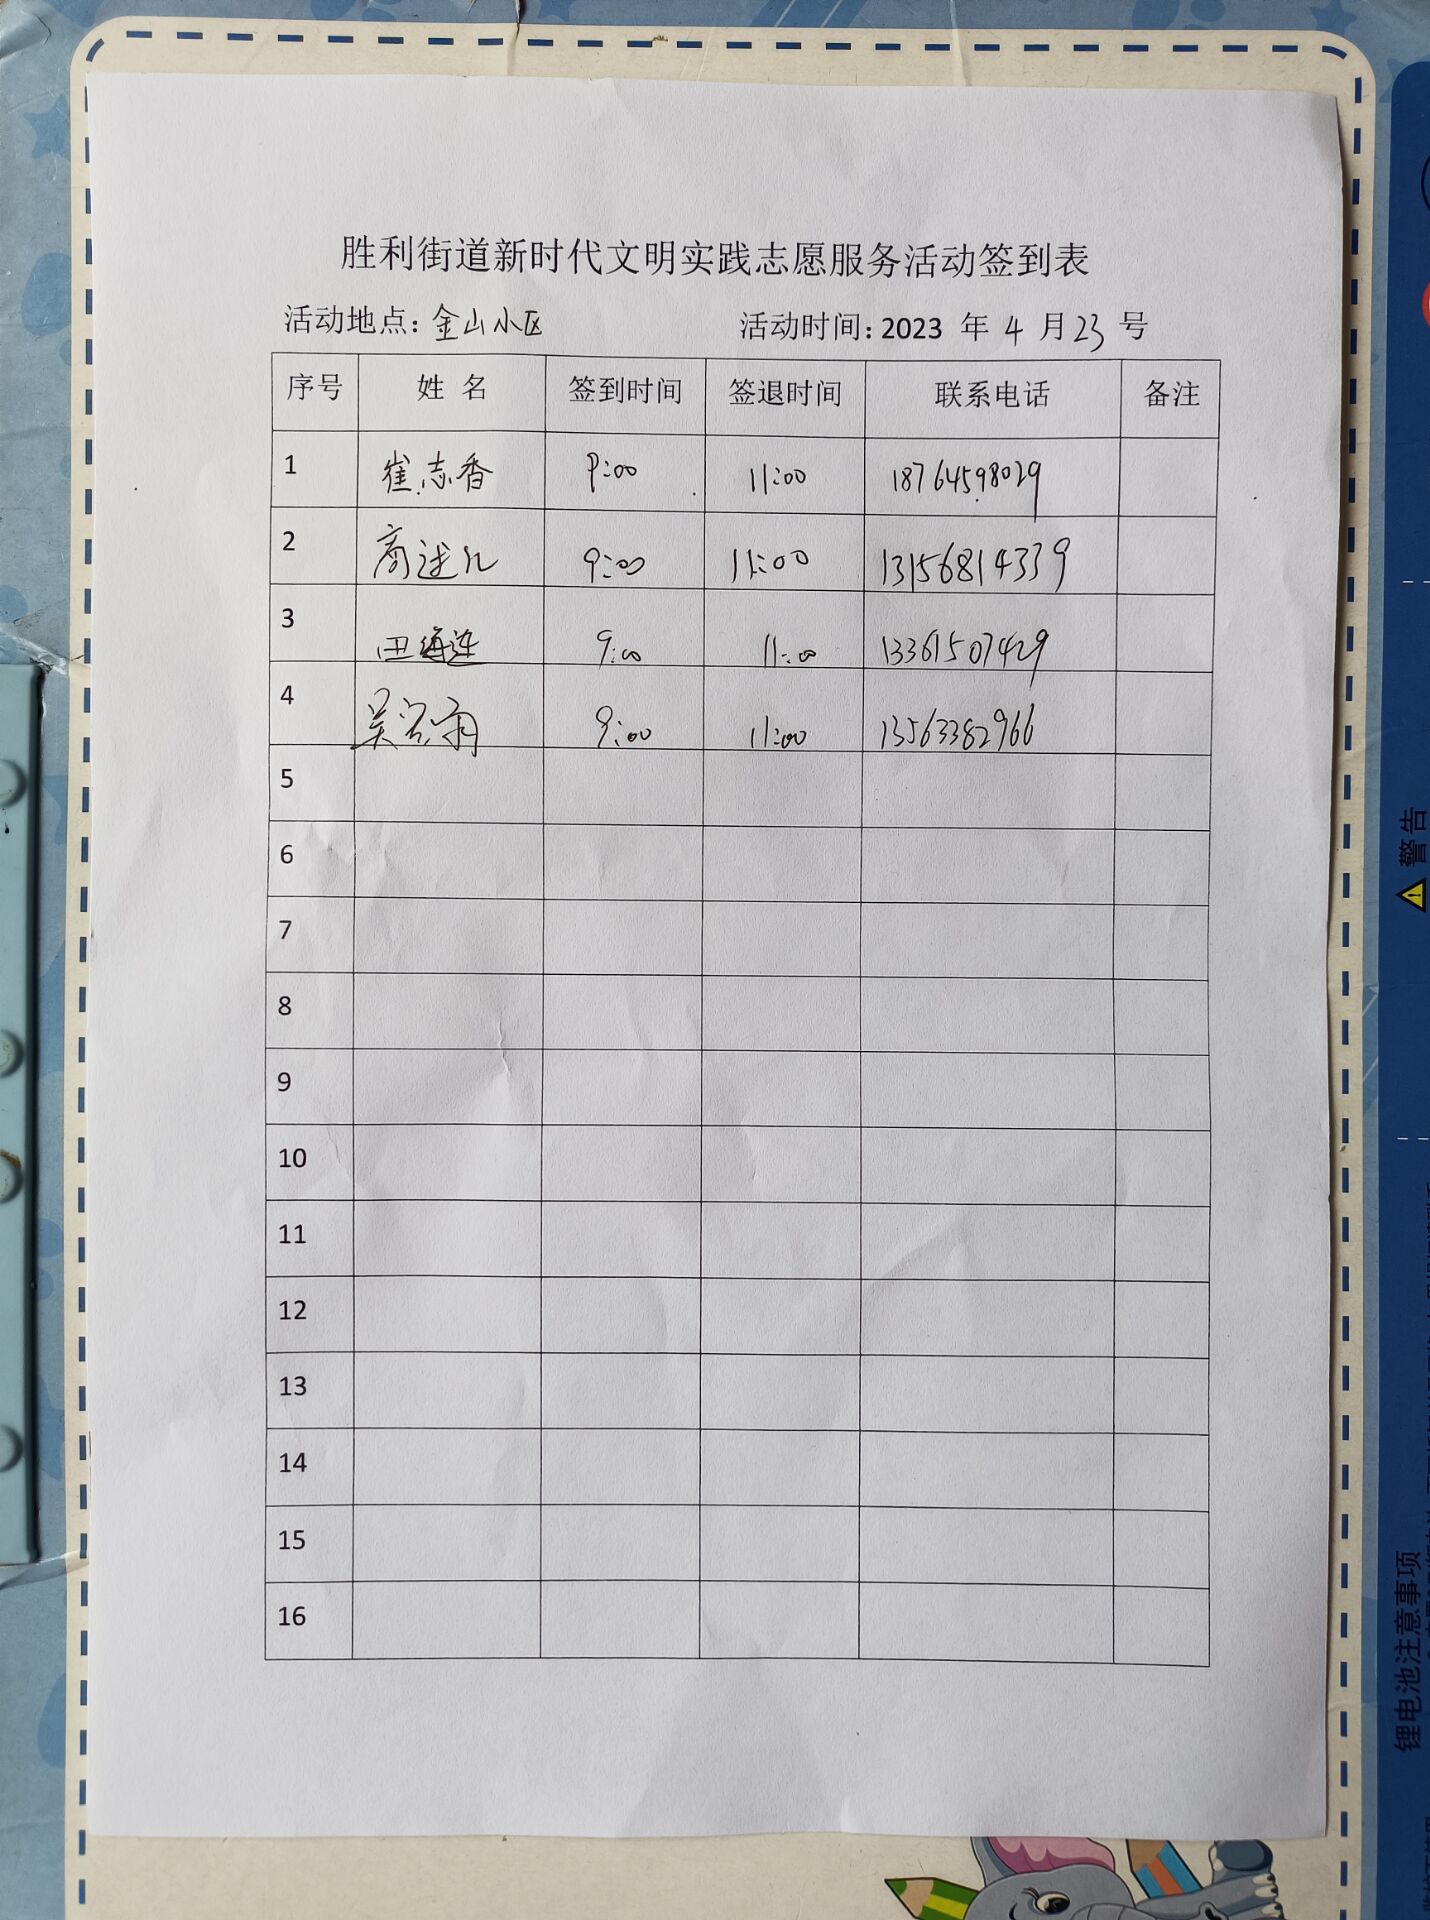 胜利街道新时代文明实践志愿服务活动签到表
活动地点: 金山小区 活动时间: 2023 年 4 月 23 号
序号 姓 名 签到时间 签退时间 联系电话 备注
1 崔志香 9:00 11:00 18764598029
2 商述九 9:00 11:00 13156814339
3 田海连 9:00 11:00 13361507429
4 吴谷雨 9:00 11:00 13563382966
5
6
7
8
9
10
11
12
13
14
15
16
警告
锂电池注意事项